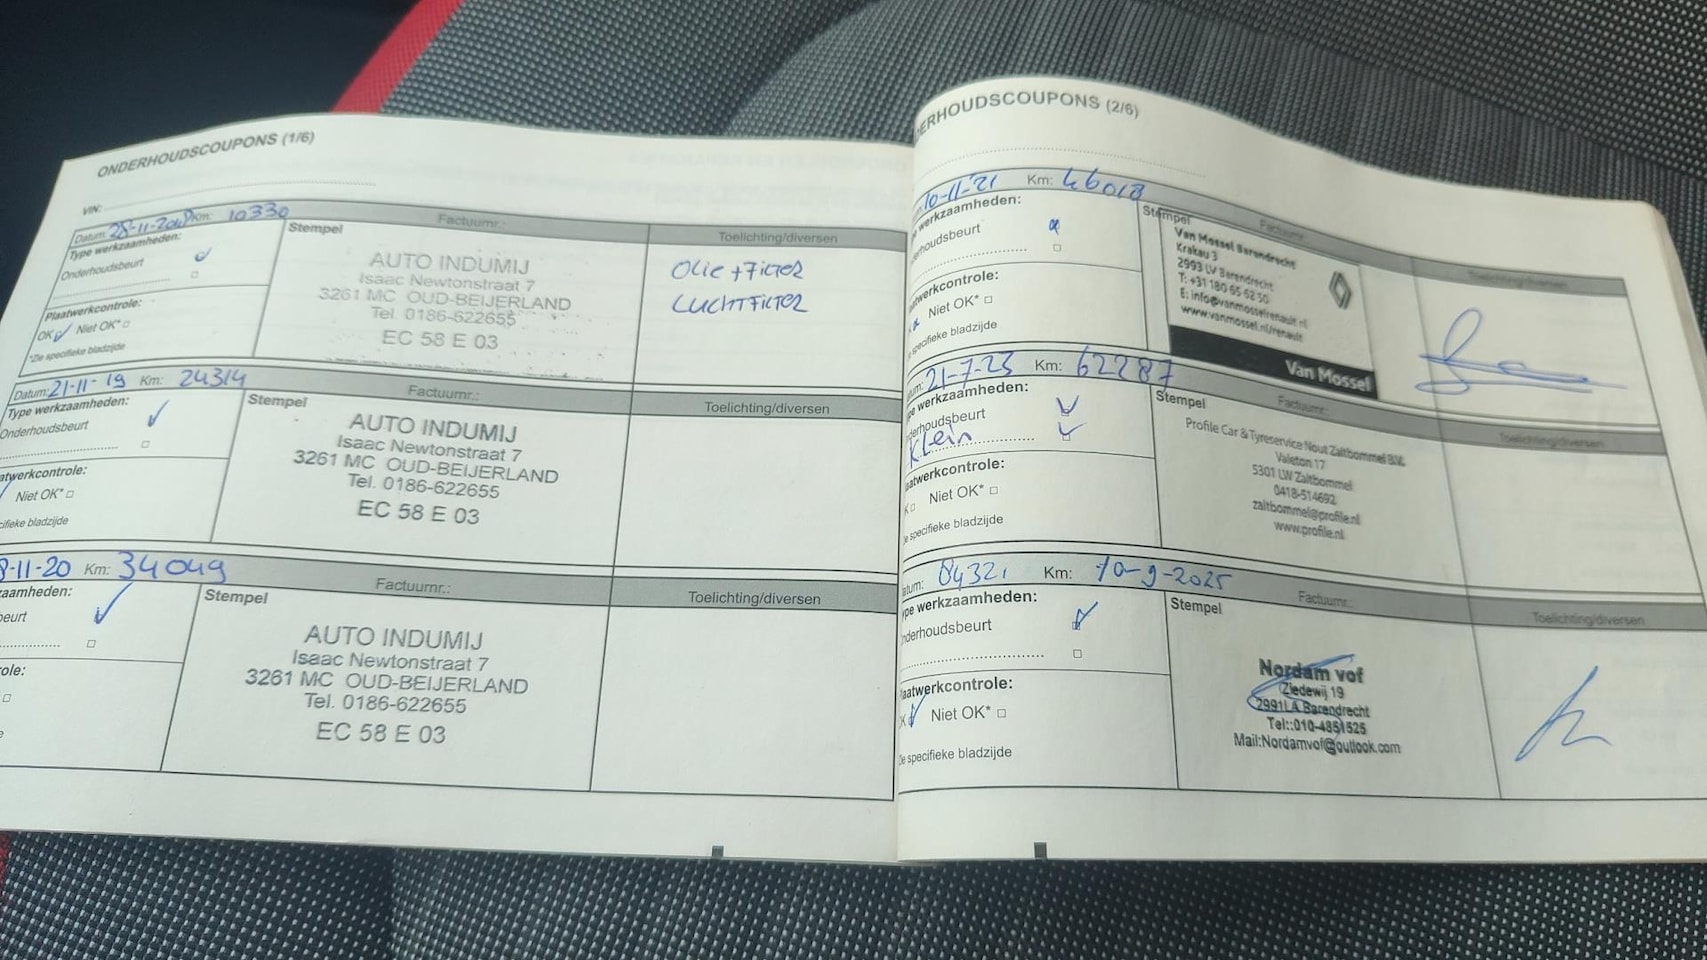 ONDERHOUDSCOUPONS (1/6)
VIN:
Datum: 28-11-2018 Km: 10330 Factuurnr.:
Type werkzaamheden:
Onderhoudsbeurt
Plaatwerkcontrole:
OK Niet OK*
*De specifieke bladzijde
Stempel
AUTO INDUMIJ
Isaac Newtonstraat 7
3261 MC OUD-BEIJERLAND
Tel. 0186-622655
EC 58 E 03
Toelichting/diversen
OLIE + FILTER
LUCHTFILTER
Datum: 21-11-19 Km: 24314 Factuurnr.:
Type werkzaamheden:
Onderhoudsbeurt
atwerkcontrole:
Niet OK*
cifieke bladzijde
Stempel
AUTO INDUMIJ
Isaac Newtonstraat 7
3261 MC OUD-BEIJERLAND
Tel. 0186-622655
EC 58 E 03
Toelichting/diversen
8-11-20 Km: 34049 Factuurnr.:
zaamheden:
beurt
ole:
Stempel
AUTO INDUMIJ
Isaac Newtonstraat 7
3261 MC OUD-BEIJERLAND
Tel. 0186-622655
EC 58 E 03
Toelichting/diversen
DERHOUDSCOUPONS (2/6)
10-11-'21 Km: 46018 Factuurnr.:
werkzaamheden:
erhoudsbeurt
aatwerkcontrole:
Niet OK*
e specifieke bladzijde
Stempel
Van Mossel Barendrecht
Krakau 3
2993 LV Barendrecht
T: +31 180 65 62 50
E: info@vanmosselrenault.nl
www.vanmossel.nl/renault
Van Mossel
Toelichting/diversen
atum: 21-7-23 Km: 62287 Factuurnr.:
pe werkzaamheden:
nderhoudsbeurt
Klein
aatwerkcontrole:
K Niet OK*
e specifieke bladzijde
Stempel
Profile Car & Tyreservice Nout Zaltbommel B.V.
Valeton 17
5301 LW Zaltbommel
0418-514692
zaltbommel@profile.nl
www.profile.nl
Toelichting/diversen
atum: 84321 Km: 10-9-2025 Factuurnr.:
ype werkzaamheden:
nderhoudsbeurt
laatwerkcontrole:
K Niet OK*
De specifieke bladzijde
Stempel
Nordam vof
Ziedewij 19
2991LA Barendrecht
Tel.:010-4851525
Mail:Nordamvof@outlook.com
Toelichting/diversen